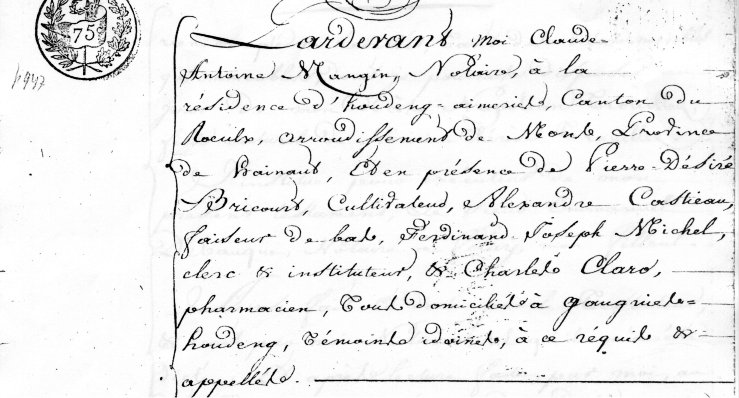 75
Pardevant moi Claude
Antoine Mangin, Notaire, à la
résidence d'houdeng-aimeries, Canton du
Roeulx, arroudissement de Mons, Province
de hainaut, Et en présence de Pierre-Désiré
Bricourt, Cultivateur, Alexandre Castieau,
faiseur de bas, Ferdinand Joseph Michel,
clerc & instituteur, & Charles Claro,
pharmacien, Tous domiciliés à gaugnies=
houdeng, Témoins idoines, à ce réquis &
appellés.